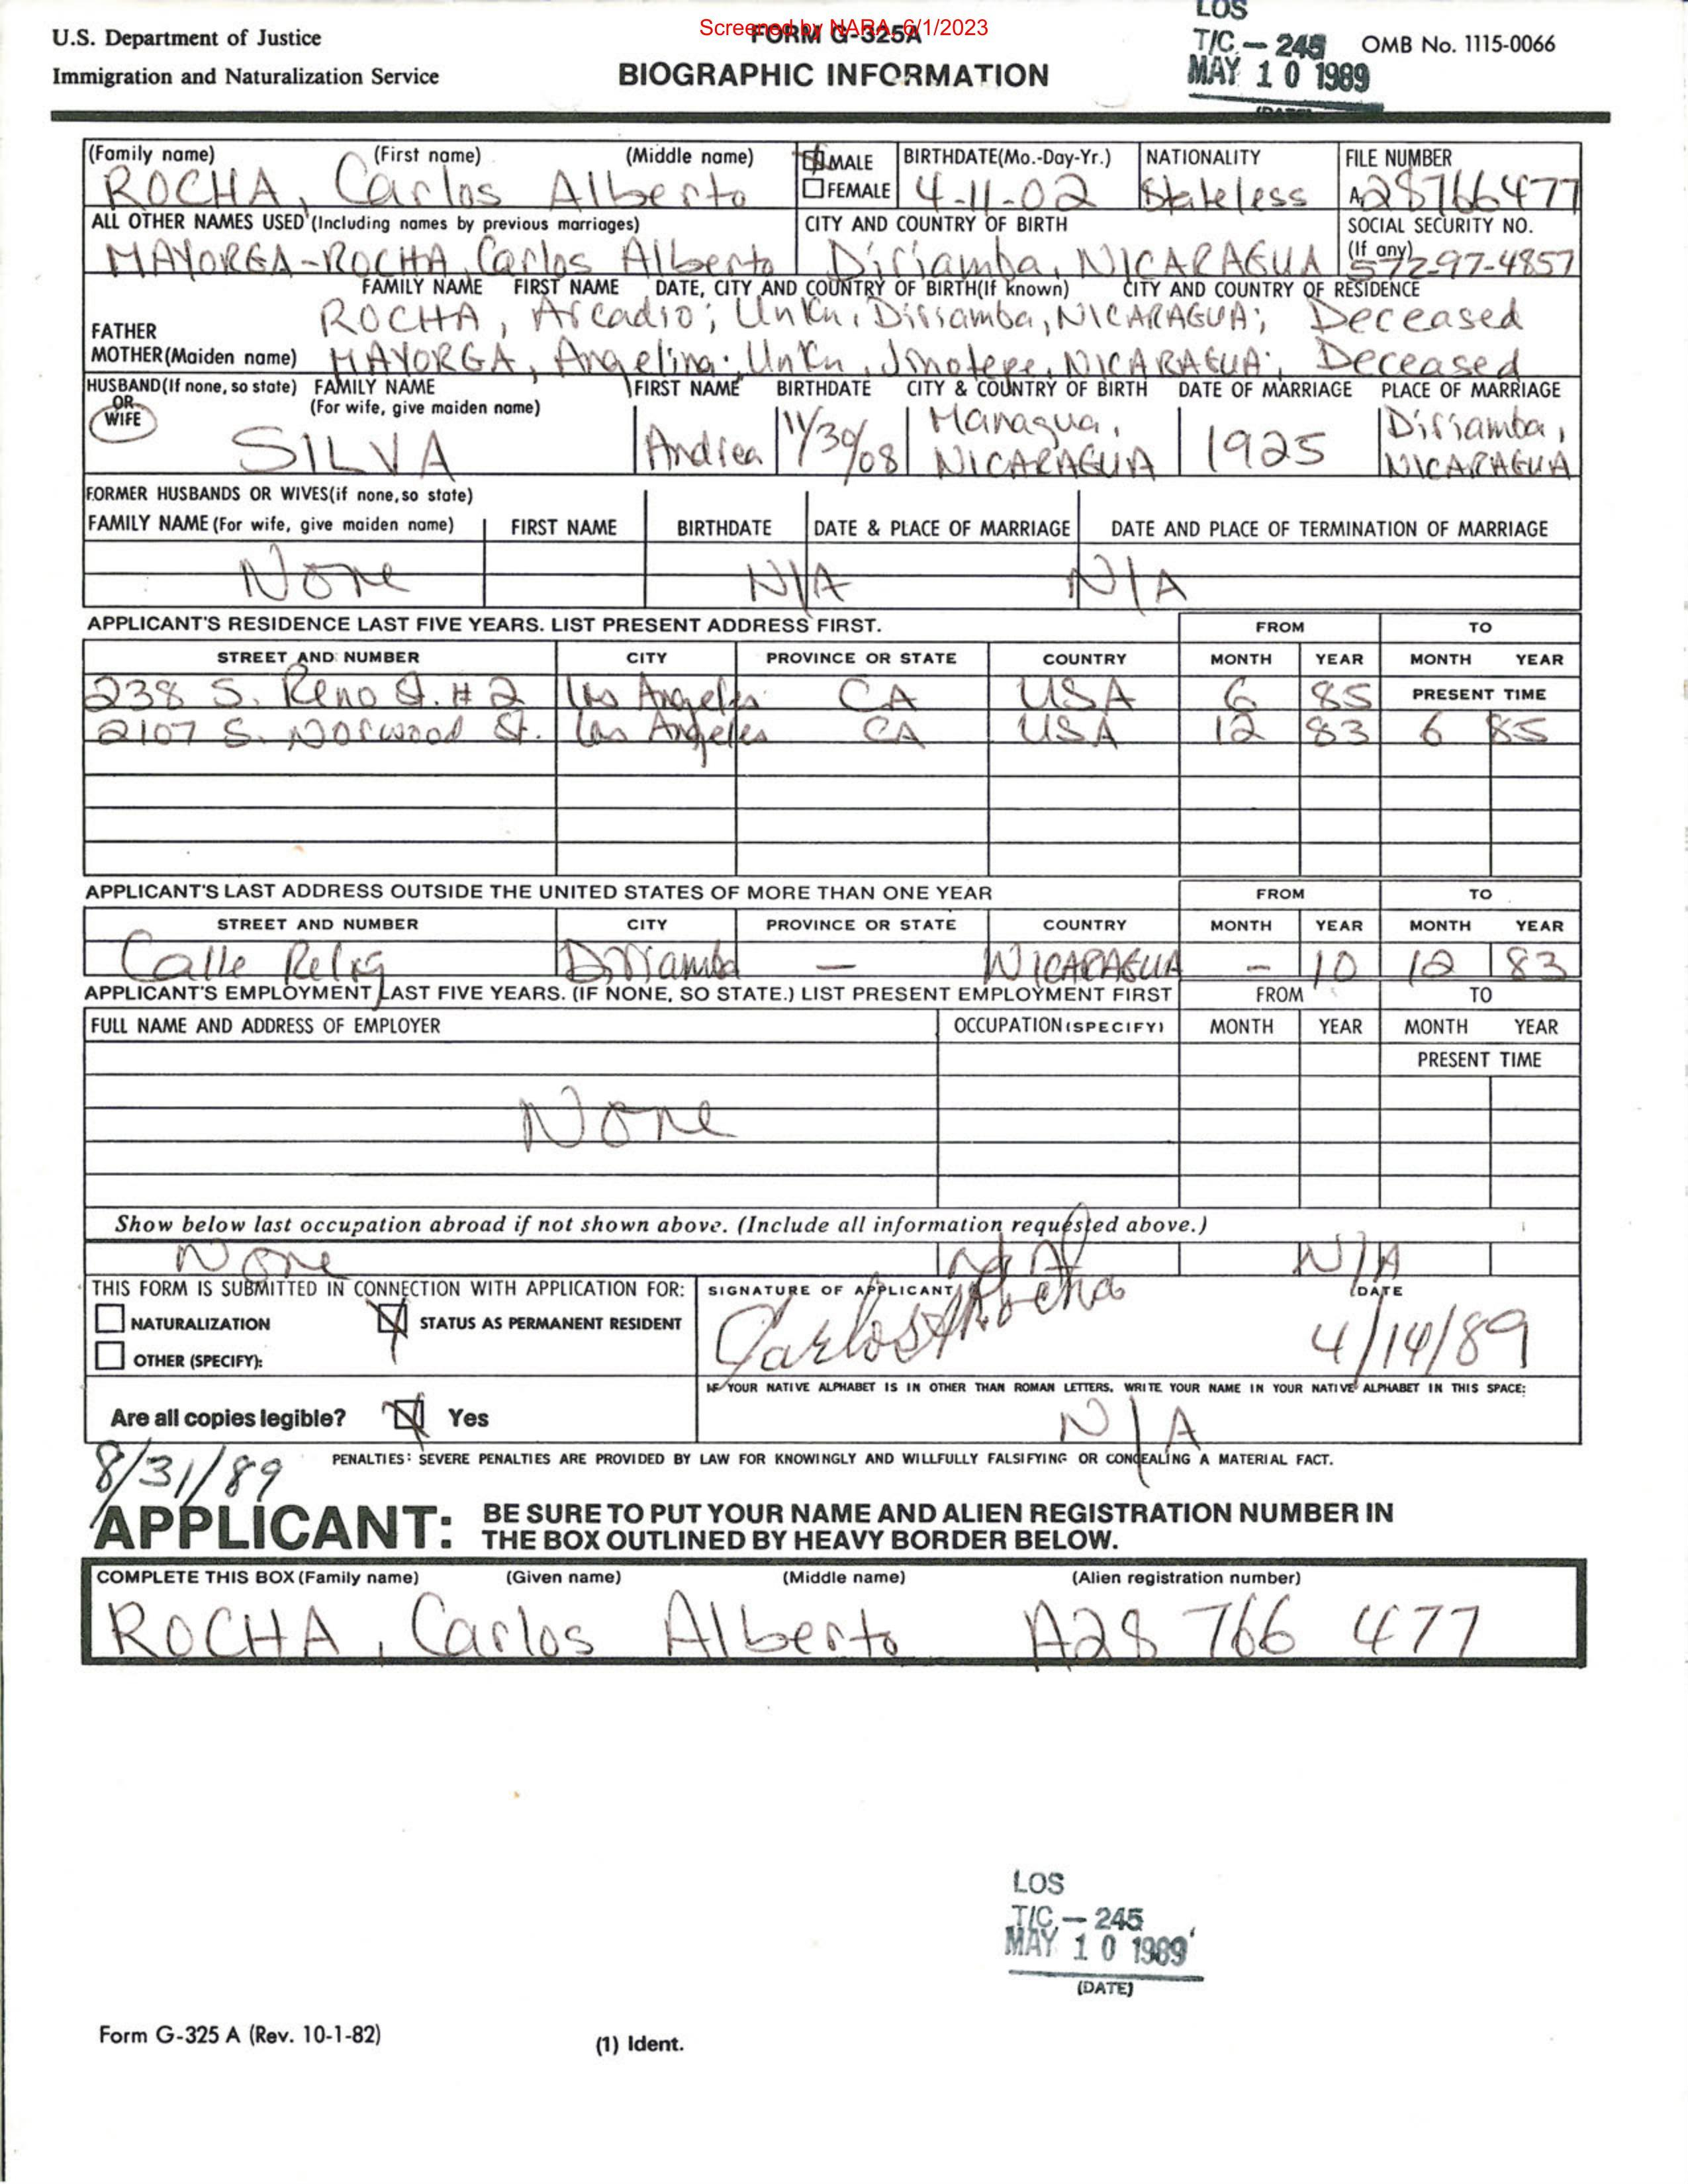 Screened by NARA, 6/1/2023
U.S. Department of Justice
Immigration and Naturalization Service
FORM G-325A
BIOGRAPHIC INFORMATION
LOS
T/C - 245
MAY 10 1989
(DATE)
OMB No. 1115-0066
(Family name) (First name) (Middle name) MALE FEMALE BIRTHDATE(Mo.-Day-Yr.) NATIONALITY FILE NUMBER
ROCHA, Carlos Alberto 4-11-02 Stateless A28766477
ALL OTHER NAMES USED (Including names by previous marriages) CITY AND COUNTRY OF BIRTH SOCIAL SECURITY NO. (If any)
MAYORGA-ROCHA, Carlos Alberto Diriamba, NICARAGUA 572-97-4857
FAMILY NAME FIRST NAME DATE, CITY AND COUNTRY OF BIRTH(If known) CITY AND COUNTRY OF RESIDENCE
FATHER ROCHA, Arcadio; Unkn, Diriamba, NICARAGUA; Deceased
MOTHER(Maiden name) MAYORGA, Angelina; Unkn, Jinotepe, NICARAGUA; Deceased
HUSBAND(If none, so state) OR WIFE FAMILY NAME (For wife, give maiden name) FIRST NAME BIRTHDATE CITY & COUNTRY OF BIRTH DATE OF MARRIAGE PLACE OF MARRIAGE
SILVA Andrea 11/30/08 Managua, NICARAGUA 1925 Diriamba, NICARAGUA
FORMER HUSBANDS OR WIVES(if none, so state)
FAMILY NAME (For wife, give maiden name) FIRST NAME BIRTHDATE DATE & PLACE OF MARRIAGE DATE AND PLACE OF TERMINATION OF MARRIAGE
None N/A N/A
APPLICANT'S RESIDENCE LAST FIVE YEARS. LIST PRESENT ADDRESS FIRST. FROM TO
STREET AND NUMBER CITY PROVINCE OR STATE COUNTRY MONTH YEAR MONTH YEAR
238 S. Reno St. #2 Los Angeles CA USA 6 85 PRESENT TIME
2107 S. Norwood St. Los Angeles CA USA 12 83 6 85
APPLICANT'S LAST ADDRESS OUTSIDE THE UNITED STATES OF MORE THAN ONE YEAR FROM TO
STREET AND NUMBER CITY PROVINCE OR STATE COUNTRY MONTH YEAR MONTH YEAR
Calle Diriamba — NICARAGUA - 10 12 83
APPLICANT'S EMPLOYMENT LAST FIVE YEARS. (IF NONE, SO STATE.) LIST PRESENT EMPLOYMENT FIRST FROM TO
FULL NAME AND ADDRESS OF EMPLOYER OCCUPATION(SPECIFY) MONTH YEAR MONTH YEAR
PRESENT TIME
None
Show below last occupation abroad if not shown above. (Include all information requested above.)
None N/A N/A
THIS FORM IS SUBMITTED IN CONNECTION WITH APPLICATION FOR: SIGNATURE OF APPLICANT DATE
NATURALIZATION STATUS AS PERMANENT RESIDENT
OTHER (SPECIFY):
Carlos A Rocha 4/14/89
IF YOUR NATIVE ALPHABET IS IN OTHER THAN ROMAN LETTERS, WRITE YOUR NAME IN YOUR NATIVE ALPHABET IN THIS SPACE:
Are all copies legible? Yes N/A
8/31/89
PENALTIES: SEVERE PENALTIES ARE PROVIDED BY LAW FOR KNOWINGLY AND WILLFULLY FALSIFYING OR CONCEALING A MATERIAL FACT.
APPLICANT: BE SURE TO PUT YOUR NAME AND ALIEN REGISTRATION NUMBER IN
THE BOX OUTLINED BY HEAVY BORDER BELOW.
COMPLETE THIS BOX (Family name) (Given name) (Middle name) (Alien registration number)
ROCHA, Carlos Alberto A28 766 477
LOS
T/C - 245
MAY 10 1989
(DATE)
Form G-325 A (Rev. 10-1-82)
(1) Ident.